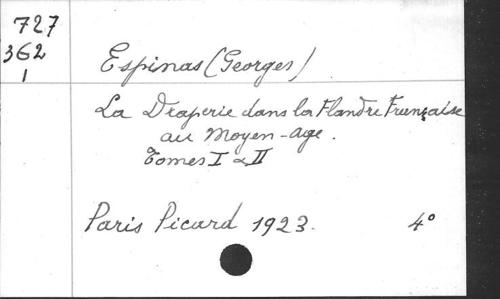 727
362
1
Espinas (Georges)
La Draperie dans la Flandre Française
au Moyen-age.
Tomes I & II
Paris Picard 1923. 4°